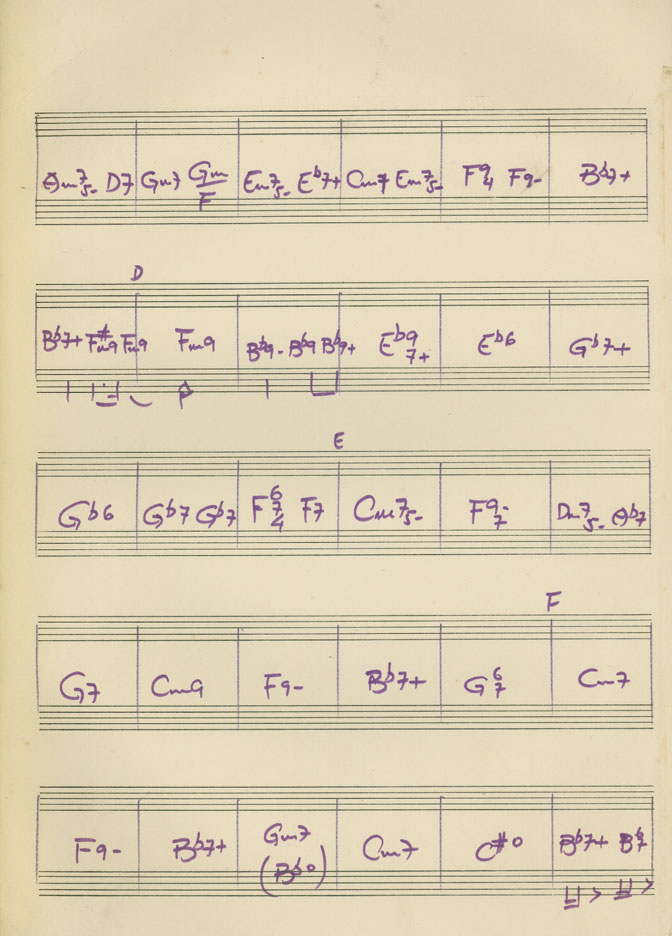 Am7 5- D7 Gm7 Gm/F Em7 5- Eb7+ Cm7 Em7 5- F9 4 F9- Bb7+
D
Bb7+ F#m9 Fm9 Fm9 Bb9- Bb9 Bb9+ Eb9 7+ Eb6 Gb7+
E
Gb6 Gb7 Gb7 F6 7 4 F7 Cm7 5- F9- 7 Dm7 5- Ab7
F
G7 Cm9 F9- Bb7+ G6 7 Cm7
F9- Bb7+ Gm7 Cm7 C#o Bb7+
(Bbo)